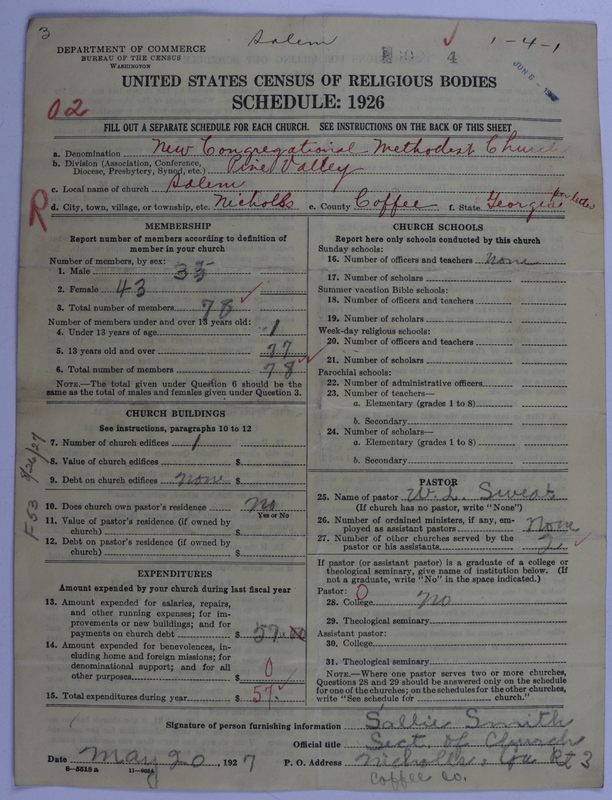 3
Salem
4
1-4-1
JUN 8 -
DEPARTMENT OF COMMERCE
BUREAU OF THE CENSUS
WASHINGTON
UNITED STATES CENSUS OF RELIGIOUS BODIES
02
SCHEDULE: 1926
FILL OUT A SEPARATE SCHEDULE FOR EACH CHURCH. SEE INSTRUCTIONS ON THE BACK OF THIS SHEET
a. Denomination New Congregational Methodist Church
b. Division (Association, Conference, Diocese, Presbytery, Synod, etc.) Pine Valley
c. Local name of church Salem
R
d. City, town, village, or township, etc. Nicholls e. County Coffee f. State Georgia
MEMBERSHIP
Report number of members according to definition of
member in your church
Number of members, by sex:
1. Male 35
2. Female 43
3. Total number of members 78
Number of members under and over 13 years old:
4. Under 13 years of age 1
5. 13 years old and over 77
6. Total number of members 78
NOTE.—The total given under Question 6 should be the
same as the total of males and females given under Question 3.
CHURCH BUILDINGS
See instructions, paragraphs 10 to 12
7. Number of church edifices 1
8. Value of church edifices $
9. Debt on church edifices none $
10. Does church own pastor's residence no
Yes or No
11. Value of pastor's residence (if owned by
church) $
12. Debt on pastor's residence (if owned by
church) $
F53 8/26/27
EXPENDITURES
Amount expended by your church during last fiscal year
13. Amount expended for salaries, repairs,
and other running expenses; for im-
provements or new buildings; and for
payments on church debt $ 57.00
14. Amount expended for benevolences, in-
cluding home and foreign missions; for
denominational support; and for all
other purposes $ 0
15. Total expenditures during year $ 57.
CHURCH SCHOOLS
Report here only schools conducted by this church
Sunday schools:
16. Number of officers and teachers None
17. Number of scholars
Summer vacation Bible schools:
18. Number of officers and teachers
19. Number of scholars
Week-day religious schools:
20. Number of officers and teachers
21. Number of scholars
Parochial schools:
22. Number of administrative officers
23. Number of teachers—
a. Elementary (grades 1 to 8)
b. Secondary
24. Number of scholars—
a. Elementary (grades 1 to 8)
b. Secondary
PASTOR
25. Name of pastor W. L. Sweat
(If church has no pastor, write "None")
26. Number of ordained ministers, if any, em-
ployed as assistant pastors None
27. Number of other churches served by the
pastor or his assistants 2
If pastor (or assistant pastor) is a graduate of a college or
theological seminary, give name of institution below. (If
not a graduate, write "No" in the space indicated.)
Pastor: 0
28. College No
29. Theological seminary
Assistant pastor:
30. College
31. Theological seminary
NOTE.—Where one pastor serves two or more churches,
Questions 28 and 29 should be answered only on the schedule
for one of the churches; on the schedules for the other churches,
write "See schedule for church."
Signature of person furnishing information Sallie Smith
Official title Sect. of Church
Date May 20, 1927 P. O. Address Nicholls, Ga Rt 3
8—5518a 11—9051
Coffee Co.